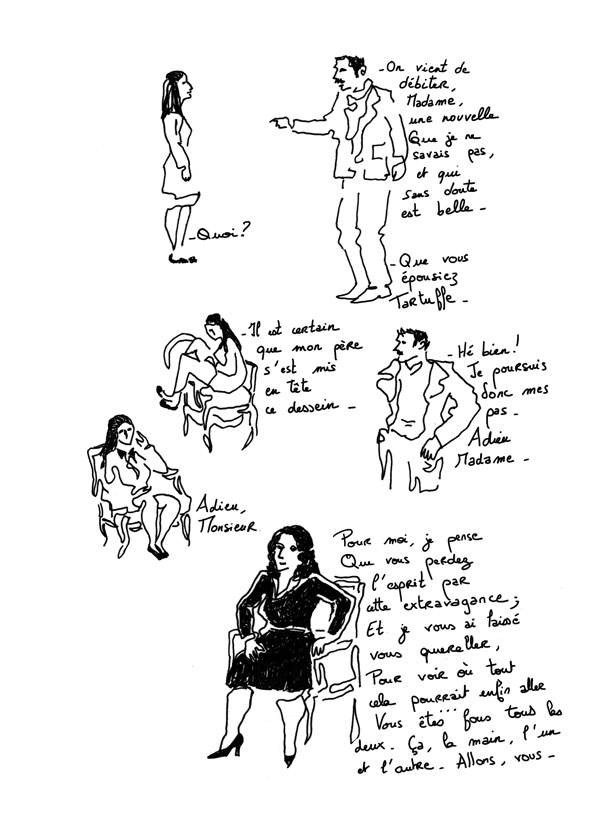 - On vient de
débiter,
Madame,
une nouvelle
Que je ne
savais pas,
et qui
sans doute
est belle -
- Quoi?
- Que vous
épousiez
Tartuffe -
- Il est certain
que mon père
s'est mis
en tête
ce dessein -
- Hé bien!
Je poursuis
donc mes
pas -
Adieu
Madame -
Adieu,
Monsieur
Pour moi, je pense
Que vous perdez
l'esprit par
cette extravagance;
Et je vous ai laissé
vous quereller,
Pour voir où tout
cela pourrait enfin aller
Vous êtes... fous tous les
deux - Ça, la main, l'un
et l'autre - Allons, vous -